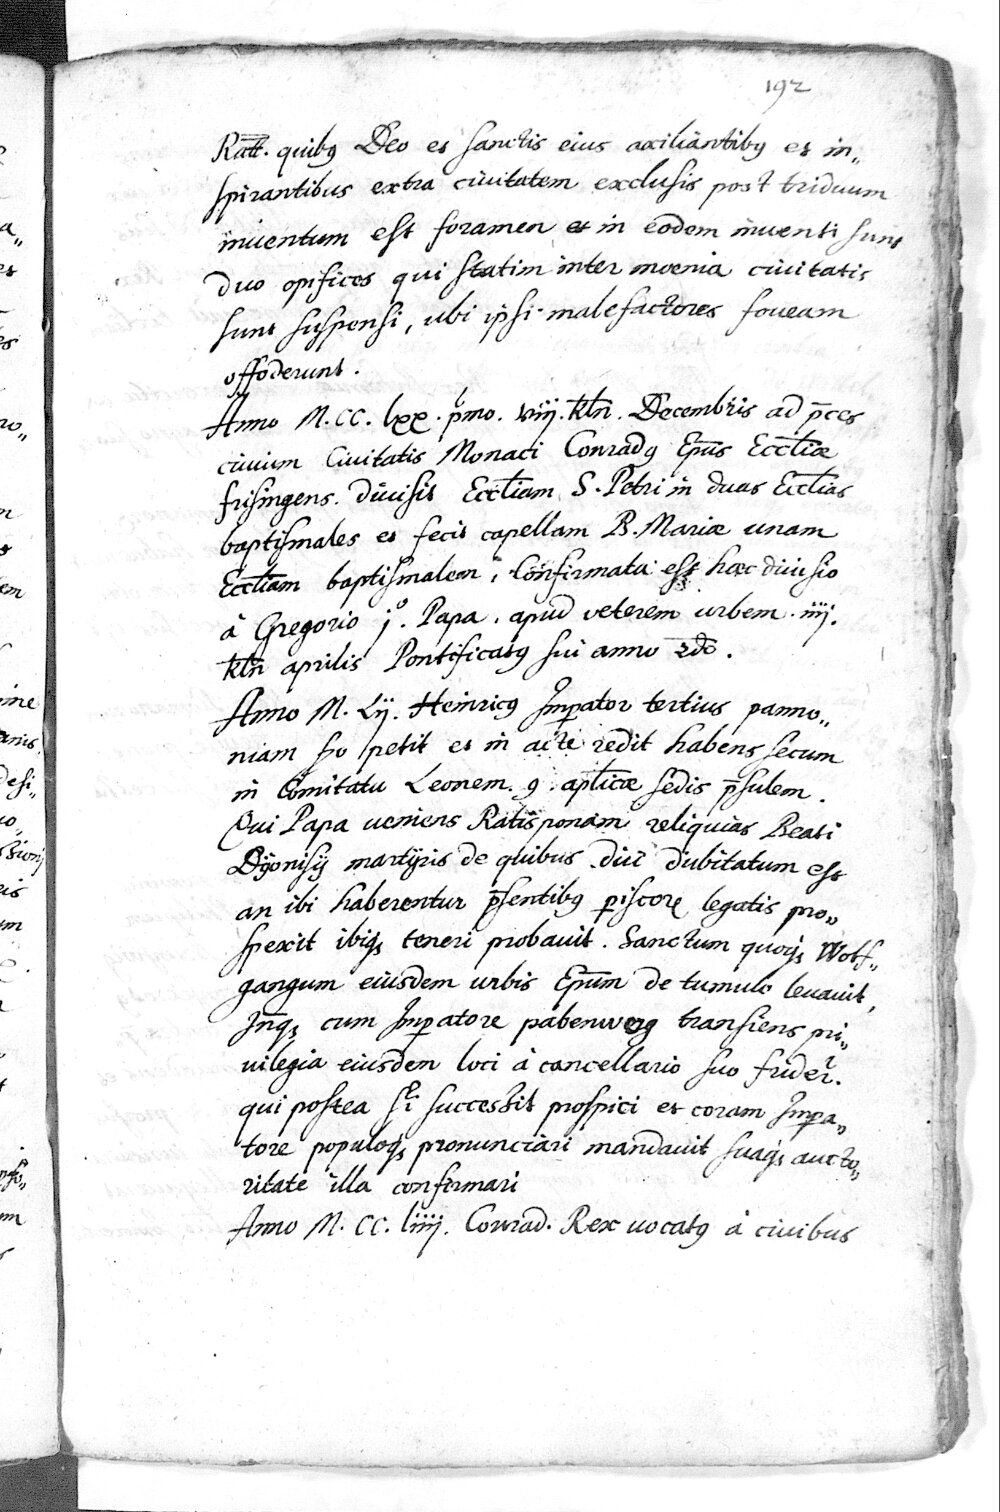 192
Ratt. quibꝯ Deo et sanctis eius auxiliantibꝯ et in„
spirantibus extra ciuitatem exclusis post triduum
inuentum est foramen et in eodem inuenti sunt
duo opifices qui statim inter moenia ciuitatis
sunt suspensi, ubi ipsi malefactores foueam
offoderunt.
Anno M. CC. lxx. p̄mo. viij. kln̄. Decembris ad p̄ces
ciuium Ciuitatis Monaci Conradꝯ Ep̄us Eccl̄iæ
frisingens. diuisit Eccl̄iam S. Petri in duas Eccl̄ias
baptismales et fecit capellam B. Mariæ unam
Eccl̄iam baptismalem, Confirmata est hæc diuisio
à Gregorio j°. Papa. apud veterem urbem. iiij.
kln̄ aprilis Pontificatꝯ sui anno 2do.
Anno M. Lij. Heinricꝯ Imp̄ator tertius panno„
niam petit et in redit habens secum
in Comitatu Leonem. 9. ap̄licæ sedis p̄sulem.
Qui Papa ueniens Ratisponam reliquias Beati
Dÿonisij martÿris de quibus diu dubitatum est
an ibi haberentur p̄sentibꝯ legatis pro„
spexit ibiqꝫ teneri probauit. Sanctum quoqꝫ Wolf„
gangum eiusdem urbis Ep̄um de tumulo leuauit,
cum Imp̄atore pabenwerg transiens pri„
uilegia eiusdem loci à cancellario suo frider.
qui postea successit prospici et coram Impa„
tore populoqꝫ pronunciari mandauit suaqꝫ aucto„
ritate illa confirmari
Anno M. CC. liiij. Conrad. Rex uocatꝯ à ciuibus